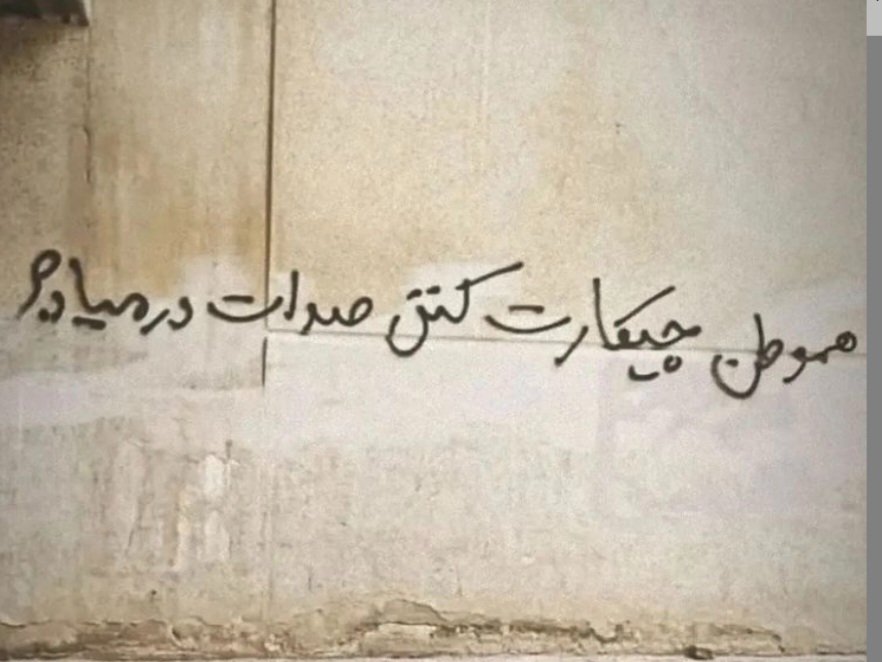 هموطن چیکارت کنن صدات درمیاد؟